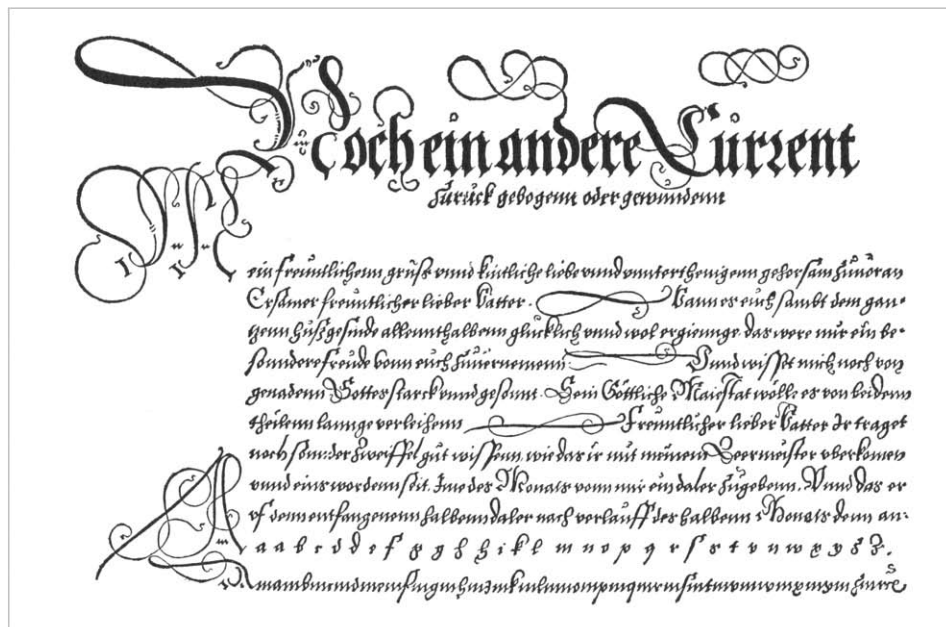 Noch ein andere Current
Zuruck gebogenn oder gewundenn
Mein freuntlichenn gruß vnnd kintliche liebe vnnd vnnterthenigenn gehorsam zuuoran
Ersamer freuntlicher lieber Vatter. Wann es euch sambt dem gan-
tzenn haußgesinde allennthalbenn glucklich vnnd wol ergienge das were mir ein be-
sondere freude vonn euch zuuernemenn: Vnnd wisset mich noch von
genadenn Gottes starck vnnd gesonnt. Sein Göttliche Maiestat wölle es von beidenn
theilenn lannge verleihenn Freuntlicher lieber Vatter Ir traget
noch sonnder zweiffel gut wissenn, wie das ir mit meinem Leermeister vberkomen
vnnd eins wordenn seit. Ime des Monats vonn mir ein daler zugebenn. Vnnd das er
vf denn entfangenenn halbenn daler nach verlauff des halbenn Monats denn an:
A a a b c d d e f g g h h i k l m n o p q r s s t v u w x y z z.